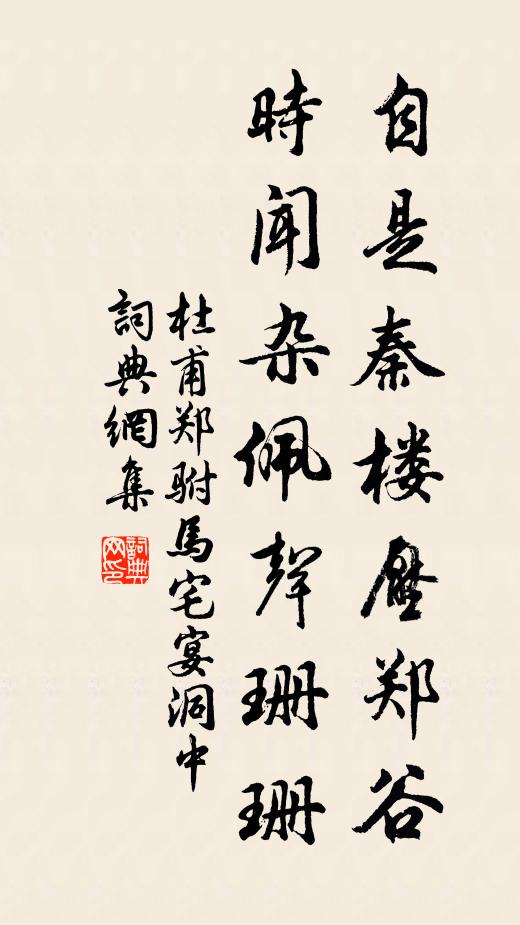 自是秦楼壓郑谷
時聞杂佩聲珊珊
杜甫郑駙馬宅宴洞中
詞典網集
詞典网印